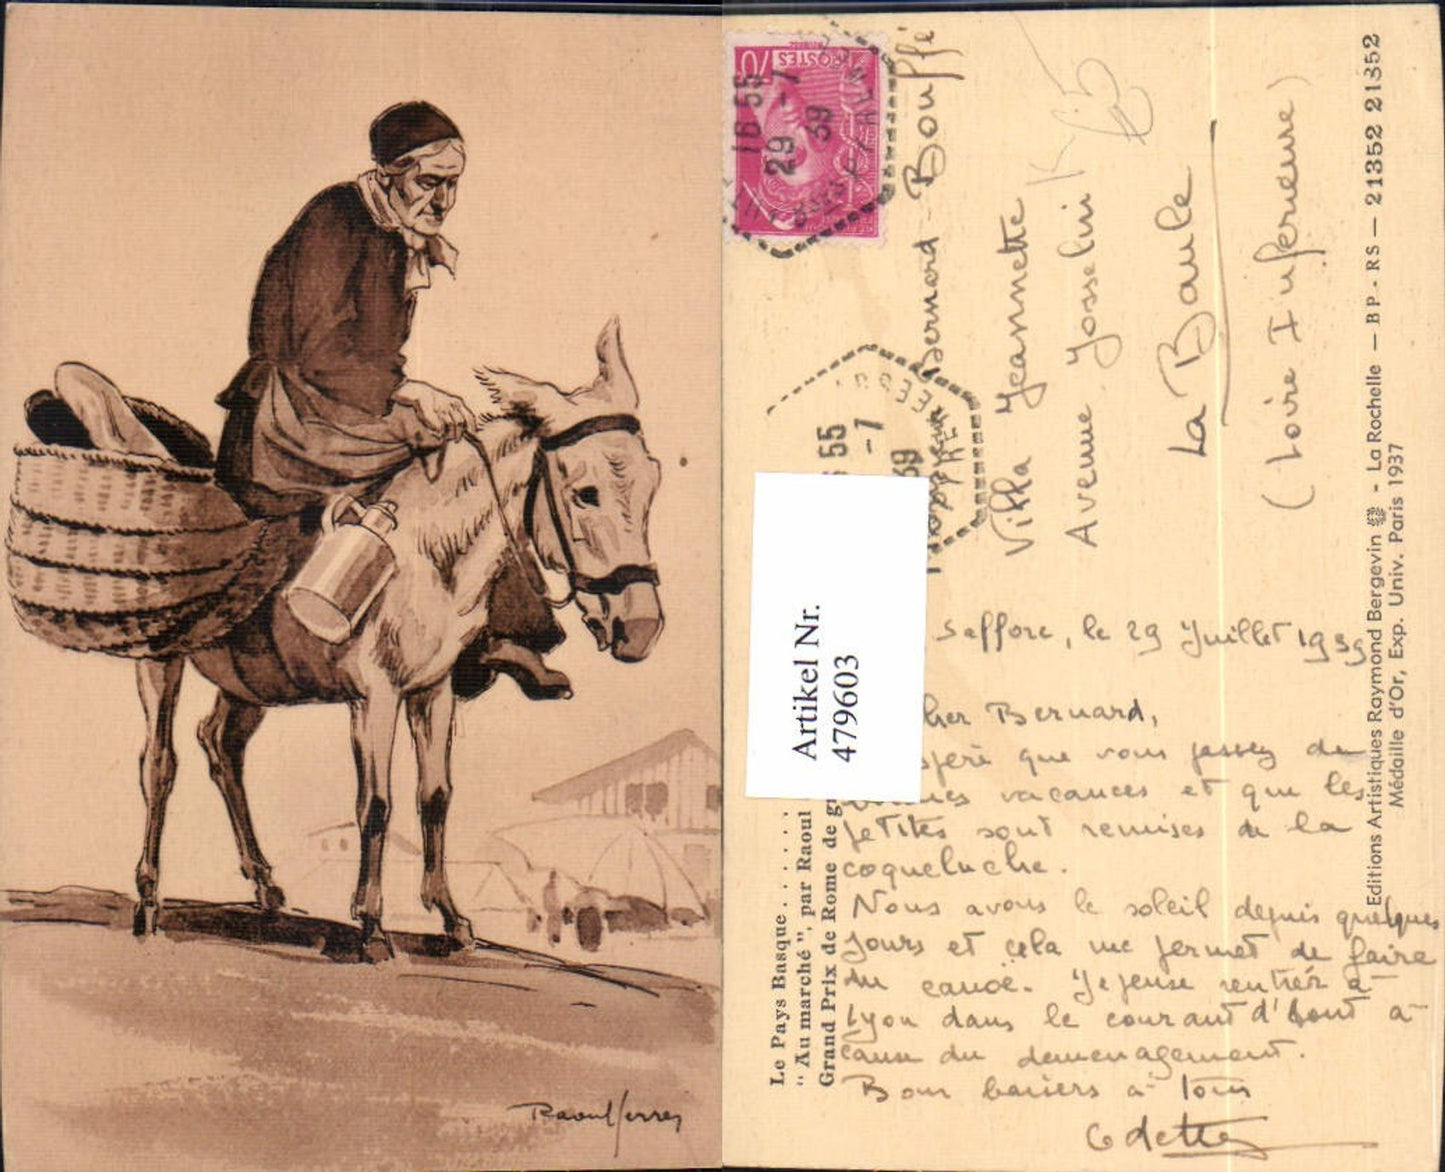 Raoul Serres
70
POSTES
16 55
29 - 7
39
55
- 7
39
Bernard Bouffé
Villa Jeannette
Avenue Josselin
La Baule
(Loire Inférieure)
Artikel Nr.
479603
Saffore, le 29 Juillet 1939
her Bernard,
spère que vous passez de
vacances et que les
petites sont remises de la
coqueluche.
Nous avons le soleil depuis quelques
jours et cela me permet de faire
du canoë. Je pense rentrer à
Lyon dans le courant d'Aout à
cause du demenagement.
Bons baisers à tous
Odette
Le Pays Basque . . . . . . .
" Au marché ", par Raoul
Grand Prix de Rome de g
Editions Artistiques Raymond Bergevin - La Rochelle — BP - RS — 21352 21352
Médaille d'Or, Exp. Univ. Paris 1937